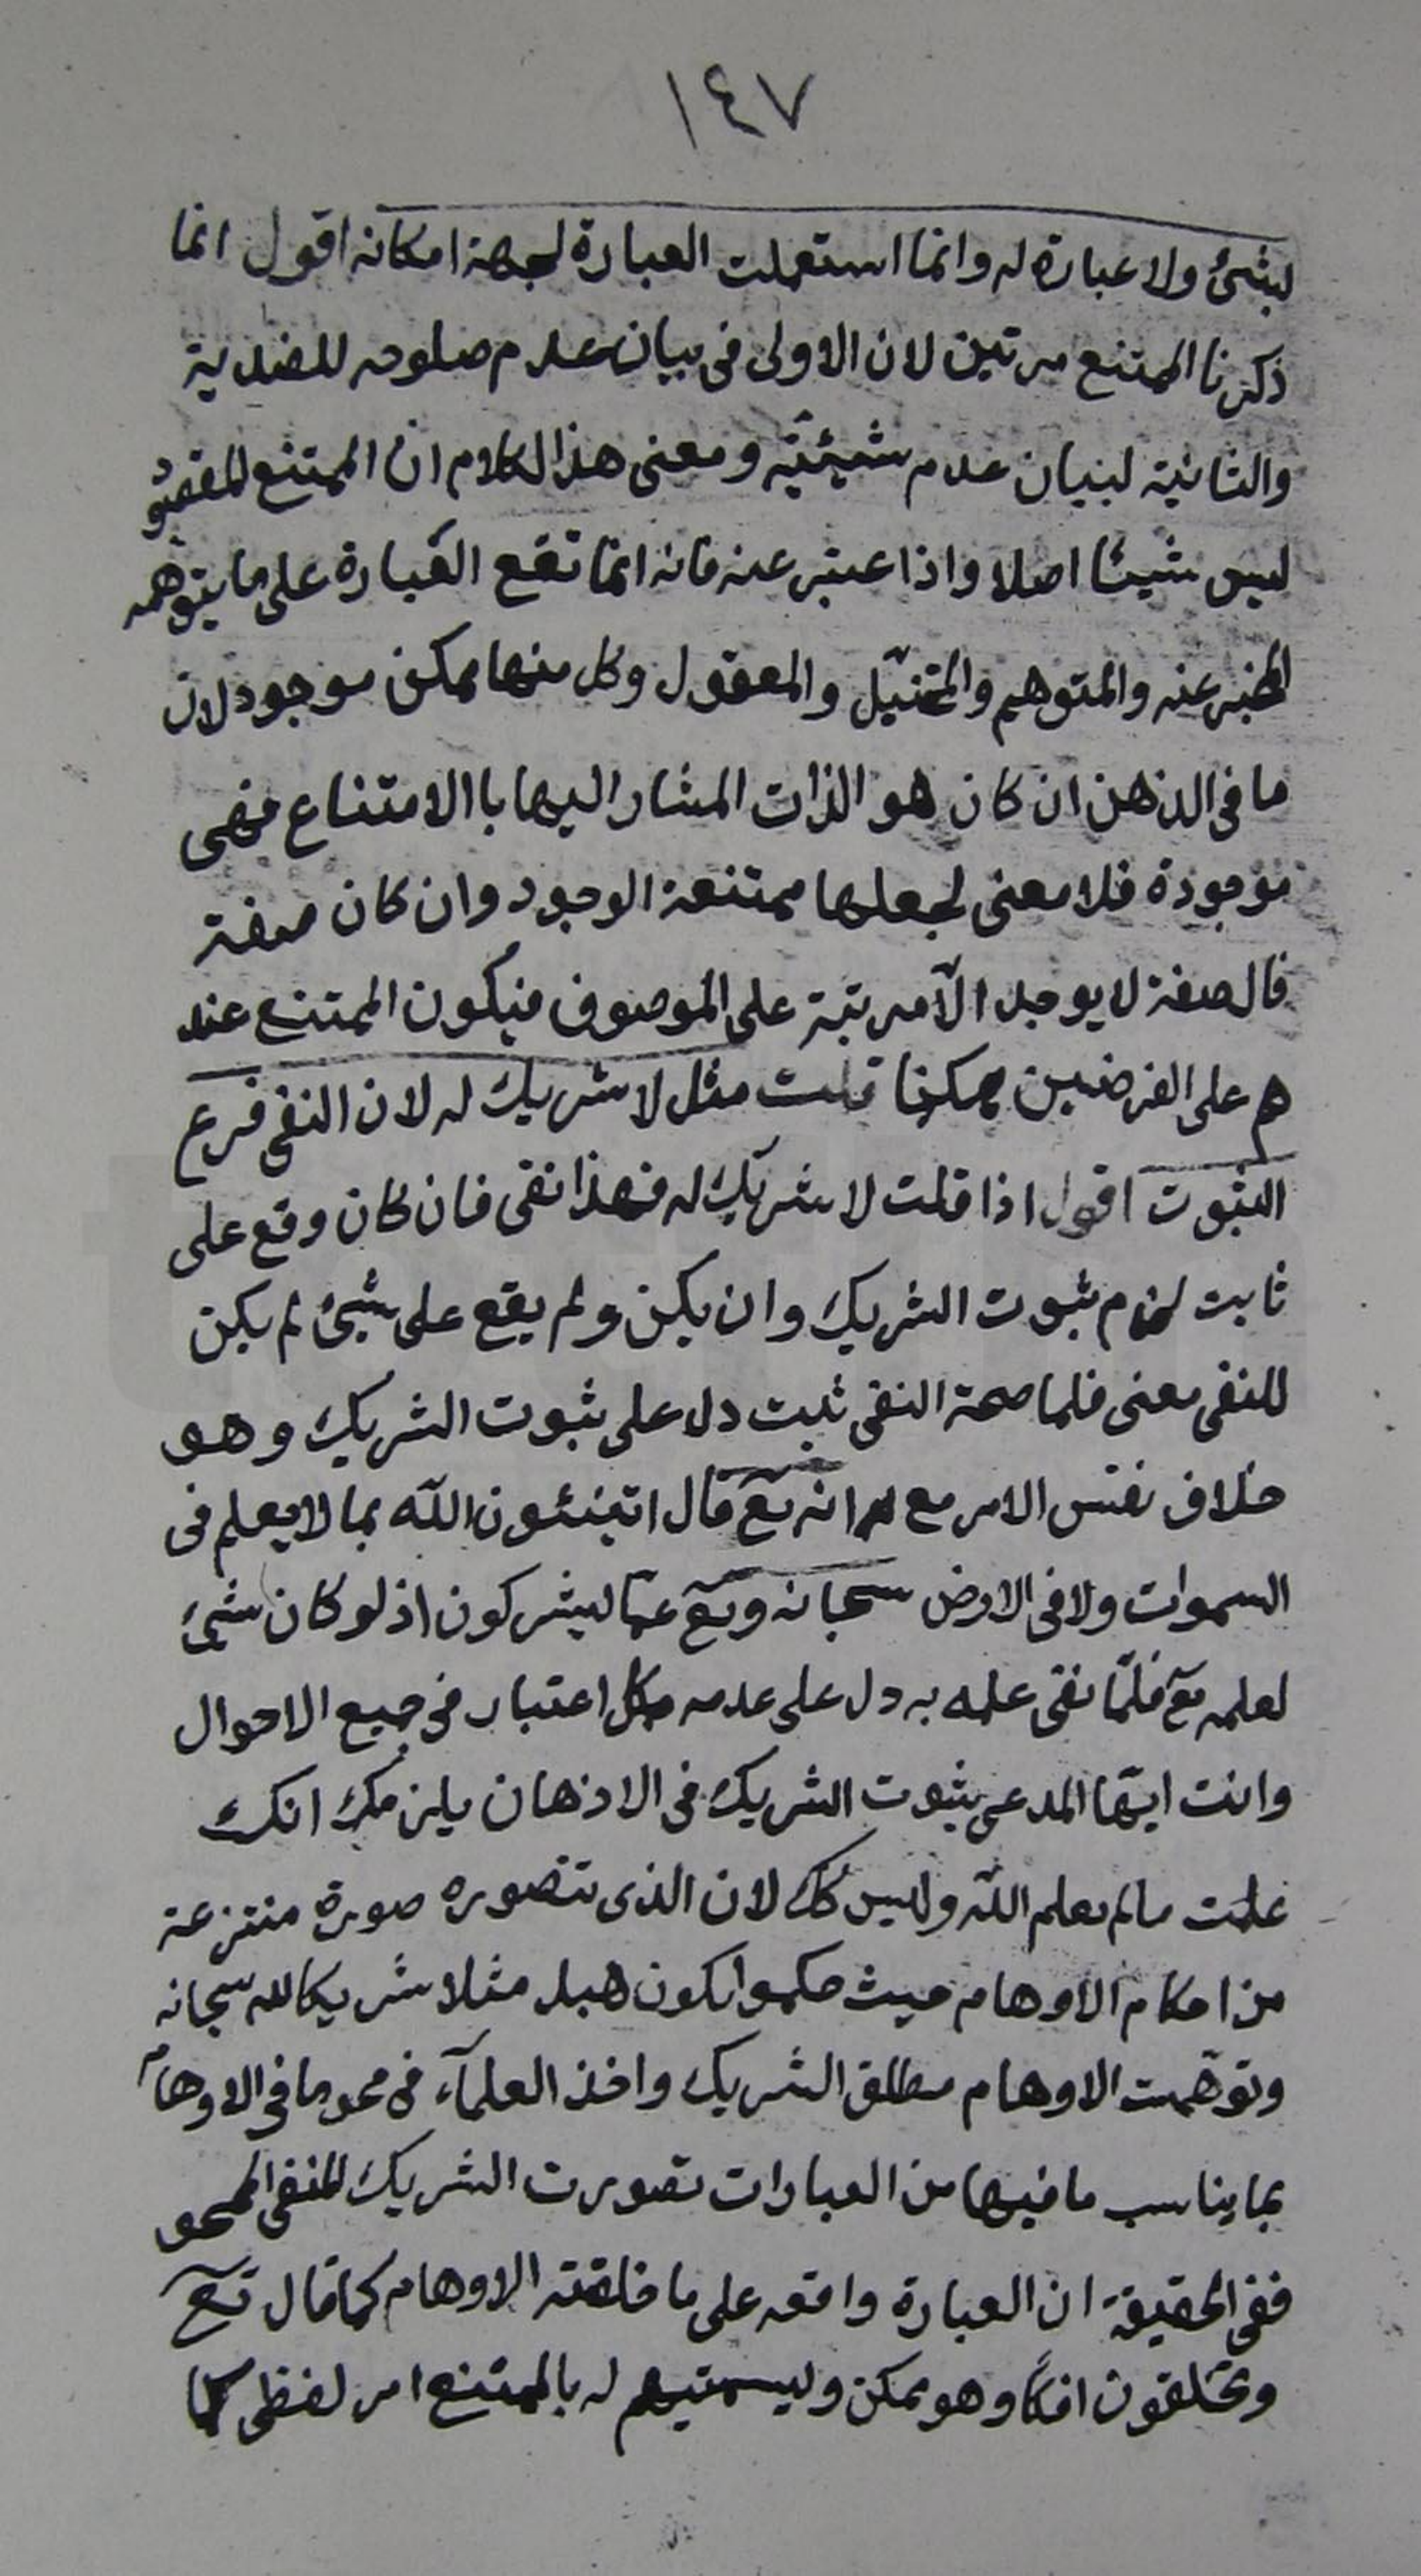 ١٤٧
بشئ ولا عبارة له وانما استعملت العبارة لجهة امكانه اقول انما
ذكرنا الممتنع مرتين لان الاولى فى بيان عدم صلوحه للضدية
والثانية لبيان عدم شيئيّته ومعنى هذا الكلام ان الممتنع
ليس شيئا اصلا واذا عبّر عنه فانه انما تقع العبارة على ما يتوهمه
المخبر عنه والمتوهم والمتخيّل والمعقول وكل منها ممكن موجود لان
ما فى الذهن ان كان هو الذات المشار اليها باالامتناع فهى
موجودة فلا معنى لجعلها ممتنعة الوجود وان كان صفته
فالصفة لا يوجد الّا مرتبة على الموصوف فيكون الممتنع عند
هم على الفرضين ممكنا قلت مثل لا شريك له لان النفى فرع
الثبوت اقول اذا قلت لا شريك له فهذا نفى فان كان وقع على
ثابت لزم ثبوت الشريك وان يكن ولم يقع على شئ لم يكن
للنفى معنى فلما صحة النفى ثبت دل على ثبوت الشريك وهو
خلاف نفس الامر مع انه تعۤ قال اتنبئون اللّه بما لا يعلم فى
السموات ولا فى الارض سبحانه وتعۤ عمّا يشركون اذ لو كان شئ
لعلمه تعۤ فلمّا نفى علمه به دل على عدمه بكل اعتبار فى جميع الاحوال
وانت ايّها المدعى بثبوت الشريك فى الاذهان يلزمك انك
علمت ما لم يعلم اللّه وليس كك لان الذى تتصوره صورة منتزعة
من احكام الاوهام حيث حكموا بكون هبل مثلا شريكا لله سبحانه
وتوهّمت الاوهام مطلق الشريك واخذ العلمآء فى محو ما فى الاوهام
بما يناسب ما فيها من العبارات تصورت الشريك المنفى الممحو
ففى الحقيقة ان العبارة واقعه على ما خلقته الاوهام كما قال تعۤ
وتخلقون افكاً وهو ممكن وليسمتيهم له بالممتنع امر لفظى كما